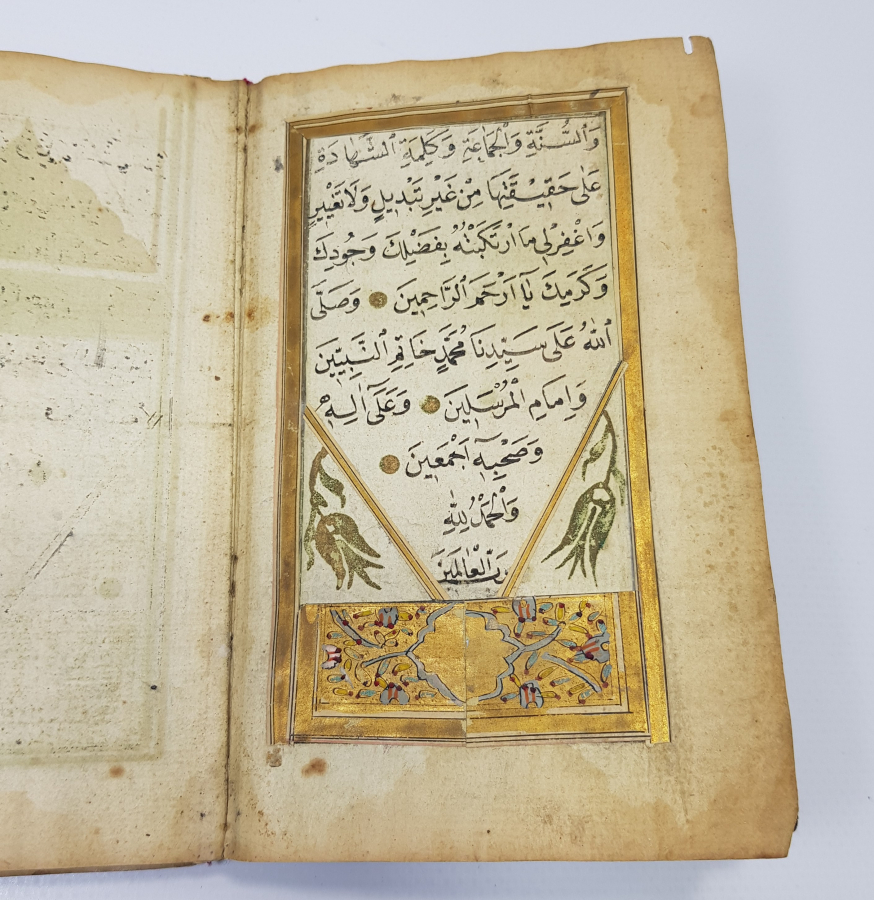 وَالسُّنَّةِ وَالْجَمَاعَةِ وَكَلِمَةِ الشَّهَادَةِ
عَلٰى حَقِيقَتِهَا مِنْ غَيْرِ تَبْدِيلٍ وَلَا تَغْيِيرٍ
وَاغْفِرْلِى مَا ارْتَكَبْتُهُ بِفَضْلِكَ وَجُودِكَ
وَكَرَمِكَ يَا اَرْحَمَ الرَّاحِمِينَ وَصَلَّى
اللّٰهُ عَلٰى سَيِّدِنَا مُحَمَّدٍ خَاتِمِ النَّبِيِّينَ
وَاِمَامِ الْمُرْسَلِينَ وَعَلٰٓى اٰلِهِ
وَصَحْبِهِ اَجْمَعِينَ
وَالْحَمْدُ لِلّٰهِ
رَبِّ الْعَالَمِينَ